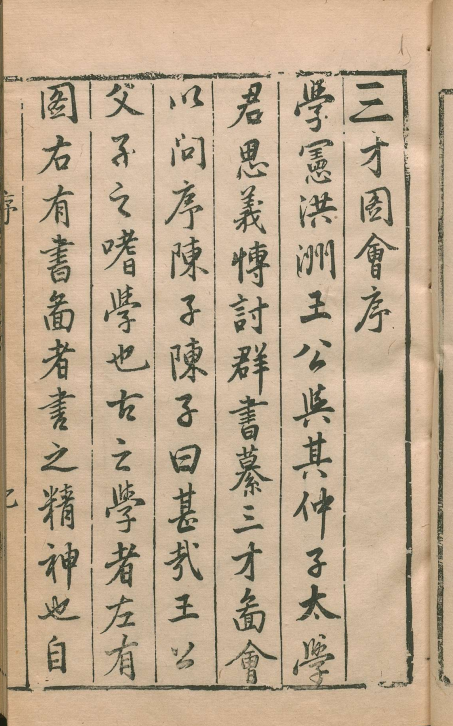 三才图會序
學憲洪洲王公與其仲子太學
君思義博討群書纂三才啚會
以問序陳子陳子曰甚哉王公
父子之嗜學也古之學者左有
图右有書啚者書之精神也自
序